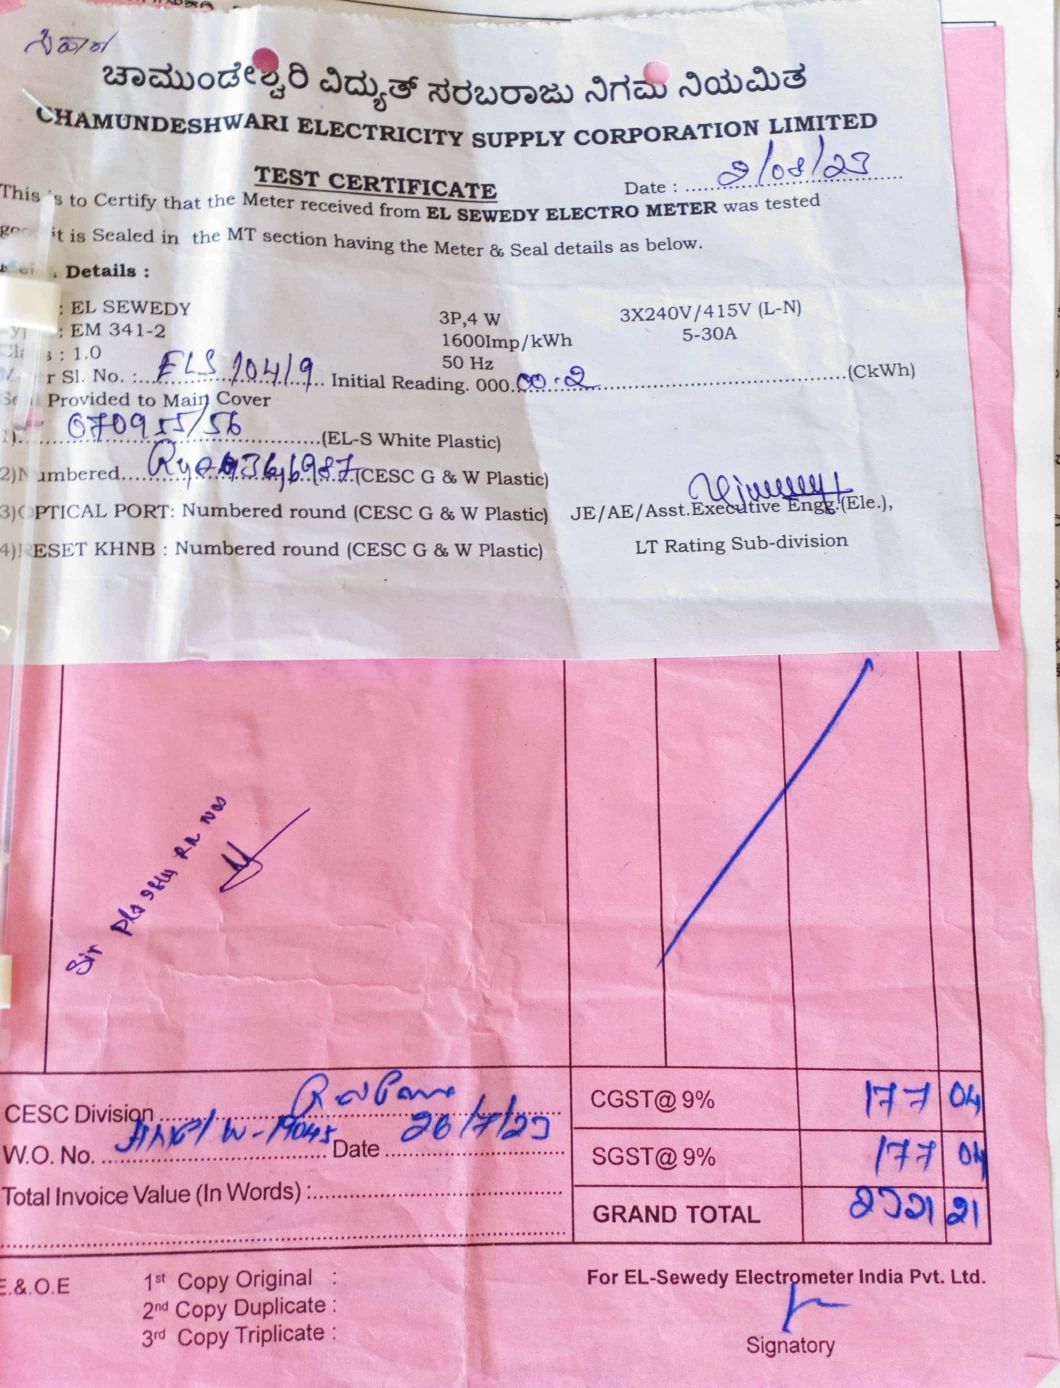 ಚಾಮುಂಡೇಶ್ವರಿ ವಿದ್ಯುತ್ ಸರಬರಾಜು ನಿಗಮ ನಿಯಮಿತ
CHAMUNDESHWARI ELECTRICITY SUPPLY CORPORATION LIMITED
TEST CERTIFICATE
Date : 2/08/23
This is to Certify that the Meter received from EL SEWEDY ELECTRO METER was tested
it is Sealed in the MT section having the Meter & Seal details as below.
Details :
: EL SEWEDY 3P,4 W 3X240V/415V (L-N)
: EM 341-2 1600Imp/kWh 5-30A
: 1.0 50 Hz
r Sl. No. : ELS 10419 Initial Reading. 000 00.2 (CkWh)
Provided to Main Cover
1) 070955/56 (EL-S White Plastic)
2)Numbered (CESC G & W Plastic)
3)OPTICAL PORT: Numbered round (CESC G & W Plastic) JE/AE/Asst.Executive Engg.(Ele.),
4)RESET KHNB : Numbered round (CESC G & W Plastic) LT Rating Sub-division
Sir
CGST@ 9% 177 04
CESC Division
W.O. No. Date 26/7/23
SGST@ 9% 177 04
Total Invoice Value (In Words) :
GRAND TOTAL 2321 21
E.&.O.E
1st Copy Original :
2nd Copy Duplicate :
3rd Copy Triplicate :
For EL-Sewedy Electrometer India Pvt. Ltd.
Signatory